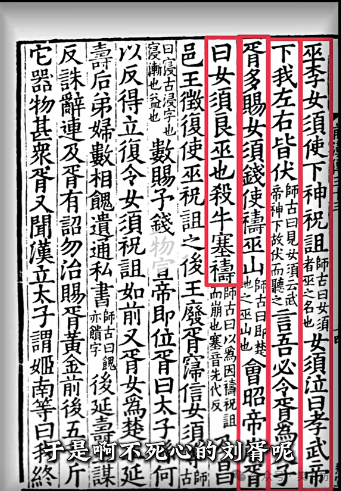 巫李女須使下神祝詛師古曰女須者巫之名也女須泣曰孝武帝
下我左右皆伏師古曰見女須云武帝神下故伏而聽之言吾必令胥爲子
胥多賜女須錢使禱巫山師古曰即楚地之巫山也會昭帝
曰女須良巫也殺牛塞禱師古曰以爲因禱祝詛而崩也塞音先代反
邑王徵復使巫祝詛之後王廢胥寖信女須等
曰寖古浸字也寖漸也益也數賜予錢物宣帝即位胥曰太子何
以反得立復令女須祝詛如前又胥女爲楚延
壽后弟婦數相餽遺通私書師古曰餽亦饋字後延壽
反誅辭連及胥有詔勿治賜胥黃金前後五斤
它器物甚衆胥又聞漢立太子謂姬南等曰我終
于是啊不死心的刘胥呢